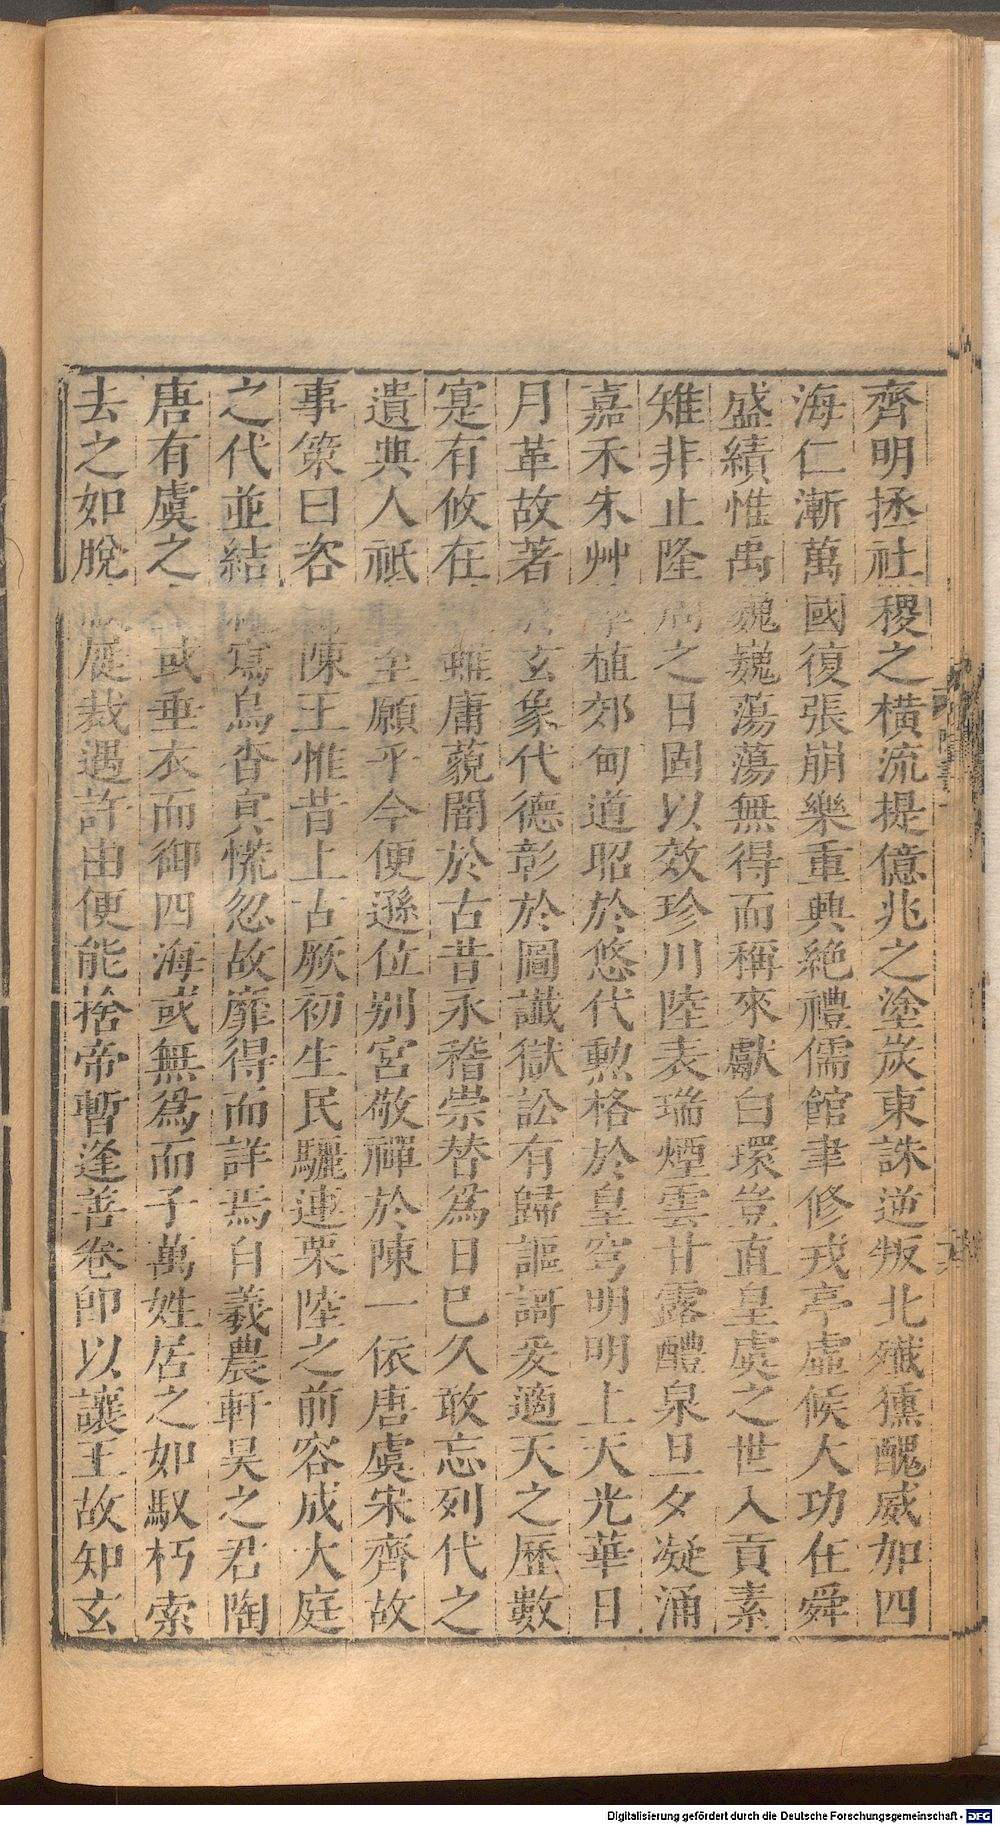 齊明拯社稷之橫流提億兆之塗炭東誅逆叛北殲獯醜威加四
海仁漸萬國復張崩樂重興絶禮儒館聿修戎亭虛候大功在舜
盛績惟禹巍巍蕩蕩無得而稱來獻白環豈直皇虞之世入貢素
雉非止隆周之日固以效珍川陸表瑞煙雲甘露醴泉旦夕凝涌
嘉禾朱艸孳植郊甸道昭於悠代勲格於皇穹明明上天光華日
月革故著玄象代德彰於圖讖獄訟有歸謳謌爰適天之歷數
寔有攸在雖庸藐闇於古昔永稽崇替爲日已久敢忘列代之
遺典人祗至願乎今便遜位别宮敬禪於陳一依唐虞宋齊故
事策曰咨陳王惟昔上古厥初生民驪連栗陸之前容成大庭
之代並結寫鳥杳冥慌忽故靡得而詳焉自羲農軒昊之君陶
唐有虞之或垂衣而御四海或無爲而子萬姓居之如馭朽索
去之如脫屣裁遇許由便能捨帝暫逢善卷即以讓王故知玄
Digitalisierung gefördert durch die Deutsche Forschungsgemeinschaft - DFG